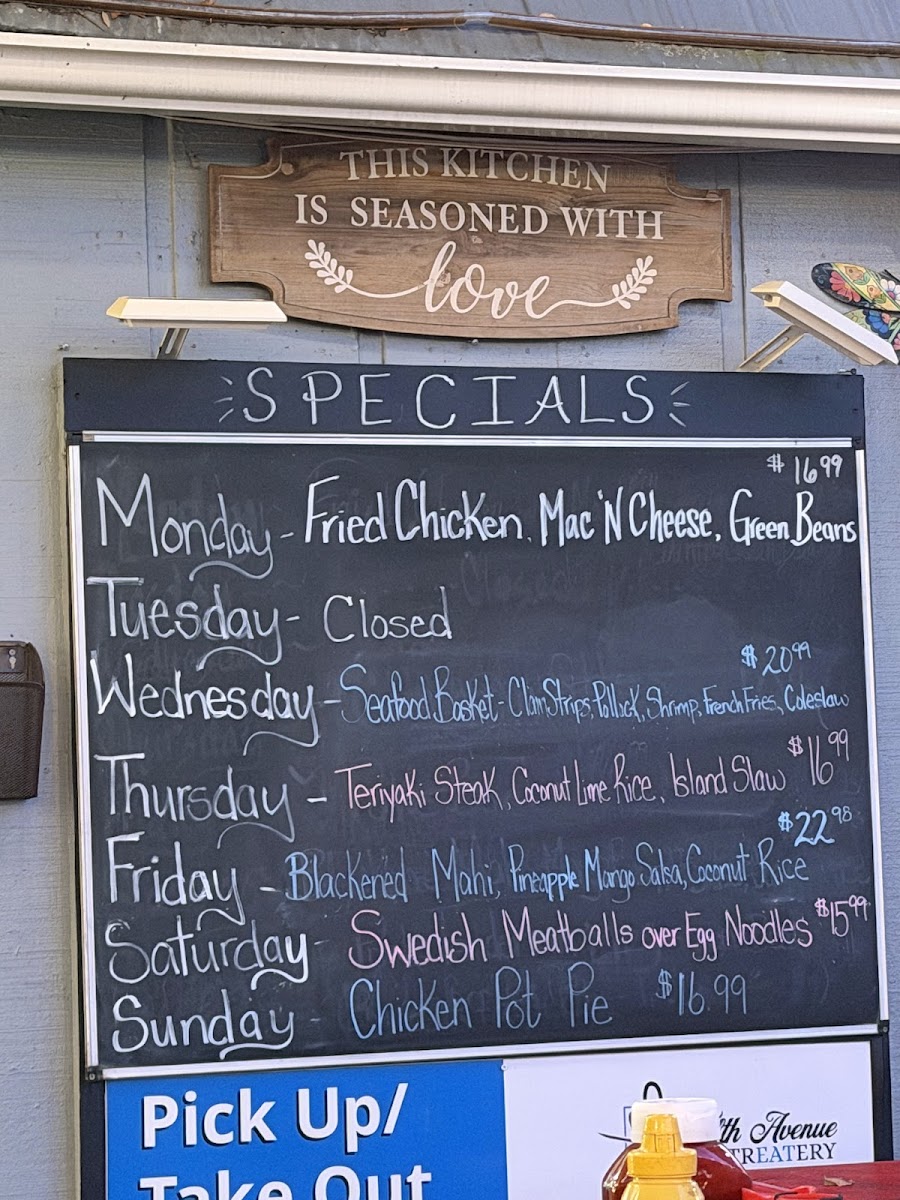 THIS KITCHEN
IS SEASONED WITH
love
SPECIALS
Monday - Fried Chicken, Mac 'N Cheese, Green Beans $16.99
Tuesday - Closed
Wednesday - Seafood Basket - Clam Strips, Pollock, Shrimp, French Fries, Coleslaw $20.99
Thursday - Teriyaki Steak, Coconut Lime Rice, Island Slaw $16.99
Friday - Blackened Mahi, Pineapple Mango Salsa, Coconut Rice $22.98
Saturday - Swedish Meatballs over Egg Noodles $15.99
Sunday - Chicken Pot Pie $16.99
Pick Up/
Take Out
th Avenue
TREATERY